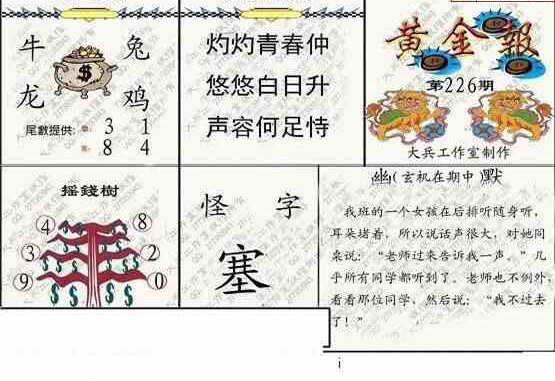 牛 兔
龙 鸡
尾數提供: 3 1
8 4
灼灼青春仲
悠悠白日升
声容何足恃
黄金報
第226期
大兵工作室制作
摇錢樹
4 8
3 2
9 0
怪 字
塞
幽(玄机在期中 默
我班的一个女孩在后排听随身听，
耳朵堵着，所以说话声很大，对她同
来说：“老师过来告诉我一声。”几
乎所有同学都听到了。老师也不例外，
看看那位同学，然后说：“我不过去
了！”
i